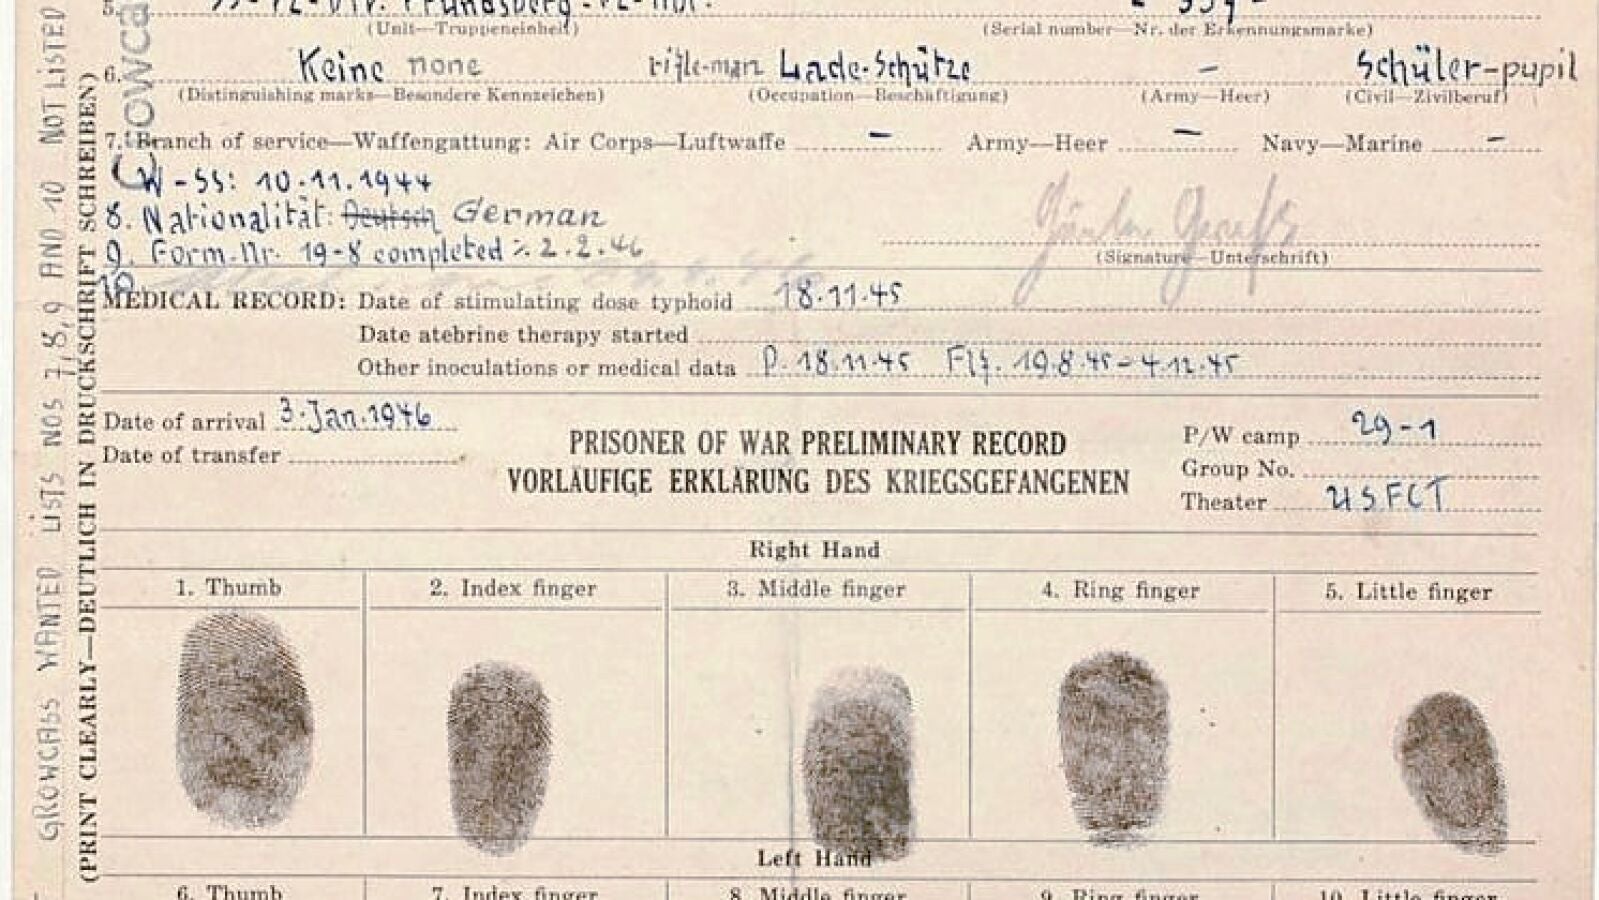 5. SS-Pz-Div. Frundsberg-Pz-Abt.
(Unit—Truppeneinheit) (Serial number—Nr. der Erkennungsmarke)
6. Keine none rifle-man Lade-Schütze – Schüler-pupil
(Distinguishing marks—Besondere Kennzeichen) (Occupation—Beschäftigung) (Army—Heer) (Civil—Zivilberuf)
7. Branch of service—Waffengattung: Air Corps—Luftwaffe – Army—Heer – Navy—Marine –
W-SS: 10.11.1944
8. Nationalität: Deutsch German
9. Form.Nr. 19-8 completed 2.2.46
(Signature—Unterschrift)
10.
MEDICAL RECORD: Date of stimulating dose typhoid 18.11.45
Date atebrine therapy started
Other inoculations or medical data P. 18.11.45 Flf. 19.8.45-4.12.45
Date of arrival 3.Jan.1946
Date of transfer
PRISONER OF WAR PRELIMINARY RECORD
VORLÄUFIGE ERKLÄRUNG DES KRIEGSGEFANGENEN
P/W camp 29-1
Group No.
Theater USFCT
Right Hand
1. Thumb 2. Index finger 3. Middle finger 4. Ring finger 5. Little finger
Left Hand
6. Thumb 7. Index finger 8. Middle finger 9. Ring finger 10. Little finger
(PRINT CLEARLY—DEUTLICH IN DRUCKSCHRIFT SCHREIBEN)
CROWCASS WANTED LISTS NOS 7,8,9 AND 10 NOT LISTED